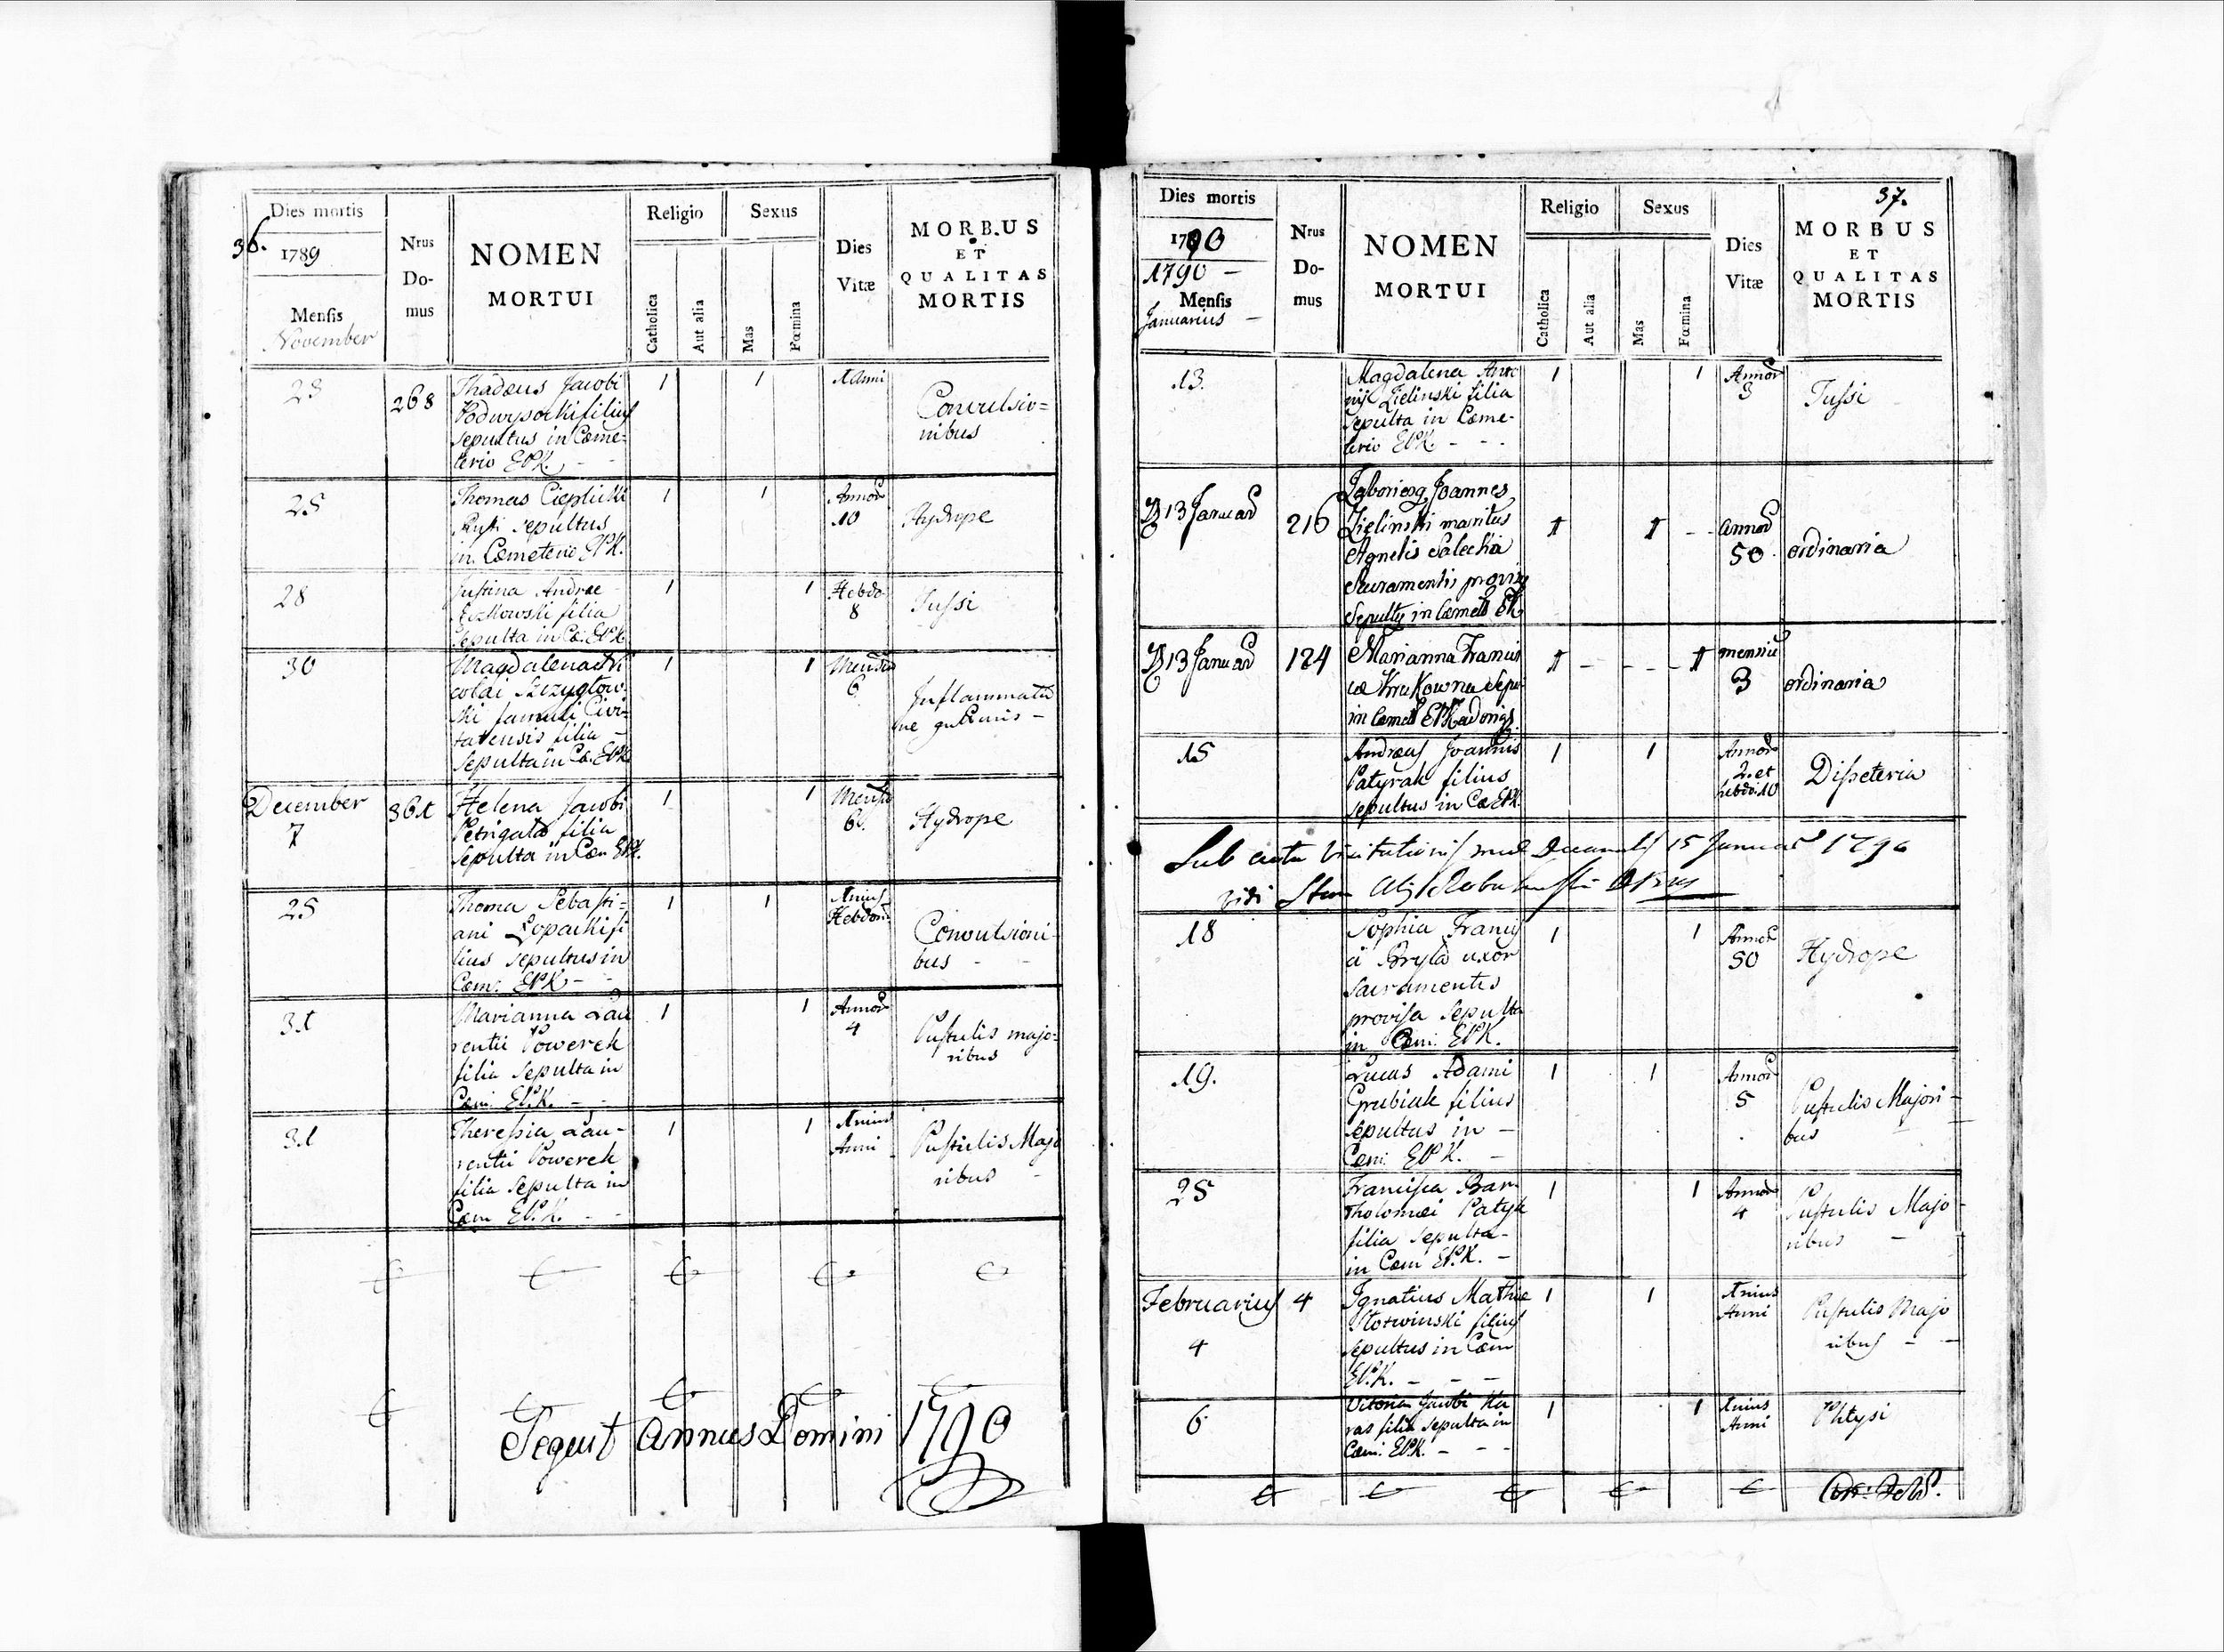 36.
Dies mortis
1789
Mensis
November
Nrus
Do-
mus
NOMEN
MORTUI
Religio
Catholica
Aut alia
Sexus
Mas
Fœmina
Dies
Vitæ
MORBUS
ET
QUALITAS
MORTIS
23
268
Thadæus Jacobi
Podwysocki filius
sepultus in Cæme-
terio EPK.
1
1
1 Anni
Convulsio=
nibus
25
Thomas Cieplicki
sepultus
in Cæmeterio EPK.
1
1
Annor
10
Hydrope
28
Justina Andreæ
filia
sepulta in Cæ. EPK
1
1
Hebdo
8
Tussi
30
Magdalena Ni
colai Szczygłow-
ski famuli Civi-
tatensis filia -
Sepulta in Cæ. EPK
1
1
Mensiu
6
Inflammatio
ne gutturis -
December
7
361
Helena Jacobi
filia
sepulta in Cæm EPK.
1
1
Mensiu
6.
Hydrope
25
Thoma Sebasti=
ani Łopackifi
lius sepultus in
Cæm. EPK - -
1
1
Unius
Hebdom.
Convulsioni-
bus - -
31
Marianna Lau
rentii Powerek
filia sepulta in
Cæm. EPK. - -
1
1
Annor
4
Pustulis majo-
ribus
31
Theressia Lau-
rentii Powerek
filia sepulta in
Cæm EPK. - -
1
1
Unius
Anni
Pustulis Majo
ribus -
Sequit Annus Domini 1790
37.
Dies mortis
1790
1790 -
Mensis
Januarius -
Nrus
Do-
mus
NOMEN
MORTUI
Religio
Catholica
Aut alia
Sexus
Mas
Fœmina
Dies
Vitæ
MORBUS
ET
QUALITAS
MORTIS
13.
Magdalena Anto
nij Zielinski filia
sepulta in Cæme-
terio EPK. - - -
1
1
Annor
3
Tussi
13 Januar
216
Joannes
Zielinski maritus
Agnetis
Sacramentis provis
Sepultus in Cæmet EPK
1
1
Annor
50
ordinaria
13 Januar
124
Marianna Francis
cæ Krukowna Sepu
in Cæmet EPK
1
1
mensiu
3
ordinaria
15
Andreas Joannis
Patyrak filius
sepultus in Cæ EPK.
1
1
Annor
2. et
hebdo: 10
Disseteria
Sub actu Visitationis meæ Decanalis 15 Januar 1790
vidi
18
Sophia Francis
ci Bryla uxor
Sacramentis
provisa sepulta
in Cæm: EPK.
1
1
Annor
50
Hydrope
19.
Lucas Adami
Grubiak filius
sepultus in -
Cæm: EPK. -
1
1
Annor
5
Pustulis Majori-
bus
25
Francisca Bar-
tholomæi Patyk
filia sepulta-
in Cæm EPK. -
1
1
Annor
4
Pustulis Majo-
ribus -
Februarius
4
4
Ignatius Mathiæ
Słotwinski filius
sepultus in Cæm
EPK. - - -
1
1
Unius
Anni
Pustulis Majo
ribus - -
6
Jacobi Ka
ras filia sepulta in
Cæm: EPK. - - -
1
1
Unius
Anni
Phtysi